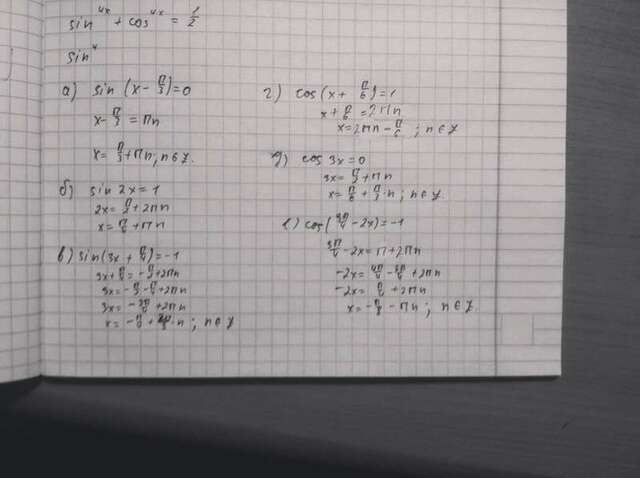 sin⁴ˣ + cos⁴ˣ = 1/2
sin⁴
а) sin (x - π/3) = 0
x - π/3 = πn
x = π/3 + πn; n∈Z.
б) sin 2x = 1
2x = π/2 + 2πn
x = π/4 + πn
в) sin(3x + π/4) = -1
3x + π/4 = -π/2 + 2πn
3x = -π/2 - π/4 + 2πn
3x = -3π/4 + 2πn
x = -π/4 + 2π/3·n; n∈Z
г) cos(x + π/6) = 1
x + π/6 = 2πn
x = 2πn - π/6; n∈Z
д) cos 3x = 0
3x = π/2 + πn
x = π/6 + π/3·n; n∈Z.
е) cos(3π/4 - 2x) = -1
3π/4 - 2x = π + 2πn
-2x = 4π/4 - 3π/4 + 2πn
-2x = π/4 + 2πn
x = -π/8 - πn; n∈Z.